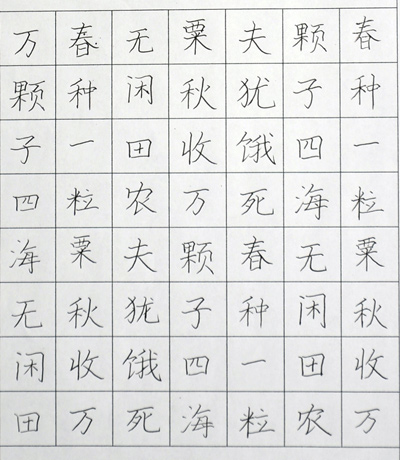 春种一粒粟秋收万
颗子四海无闲田农
夫犹饿死春种一粒
粟秋收万颗子四海
无闲田农夫犹饿死
春种一粒粟秋收万
万颗子四海无闲田